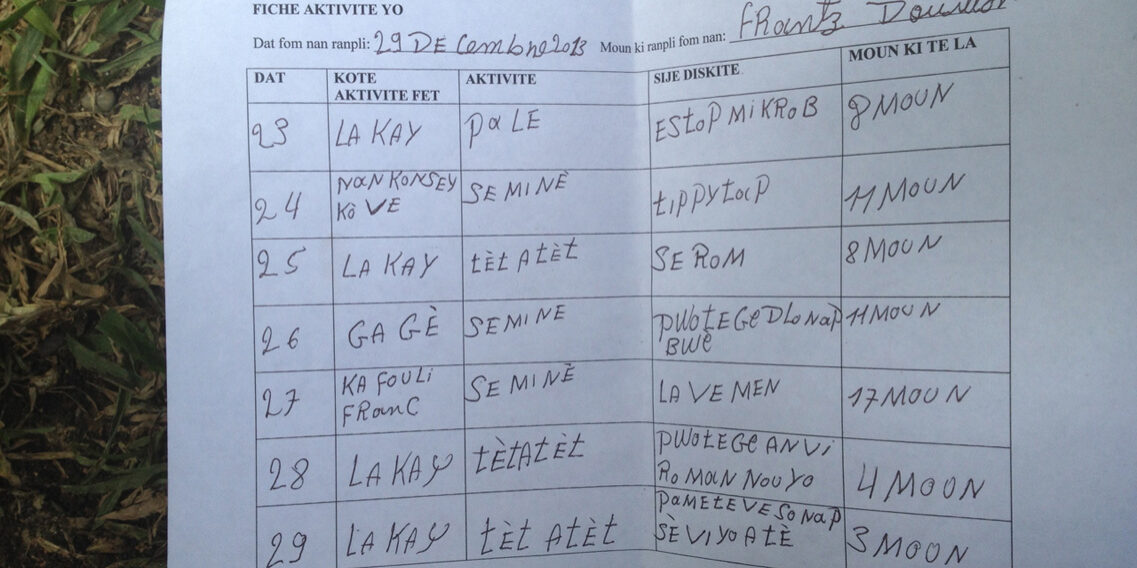 FICHE AKTIVITE YO
Dat fom nan ranpli: 29 DE Cembre 2013 Moun ki ranpli fom nan: FRantz
DAT KOTE AKTIVITE FET AKTIVITE SIJE DISKITE MOUN KI TE LA
23 LA KAY PaLE EStoP MiKRoB 8 MOUN
24 NaN KONSEY Kò VE SEMINÈ tiPPYtaP 11 MOUN
25 LA KAY tÈt AtÈt SE RoM 8 MOUN
26 GAGÈ SEMINE PWotEGe DLo Nap BWÈ 11 MOUN
27 KA FOULi FRanC SE MINÈ LA VE MEN 17 MOUN
28 LA KAY tÈtAtÈt PWotEGE ANVi RoMaN NOUYO 4 MOON
29 LA KAY tÈt AtÈt PaMEtEVESO Nap SÈViYo AtÈ 3 MOON